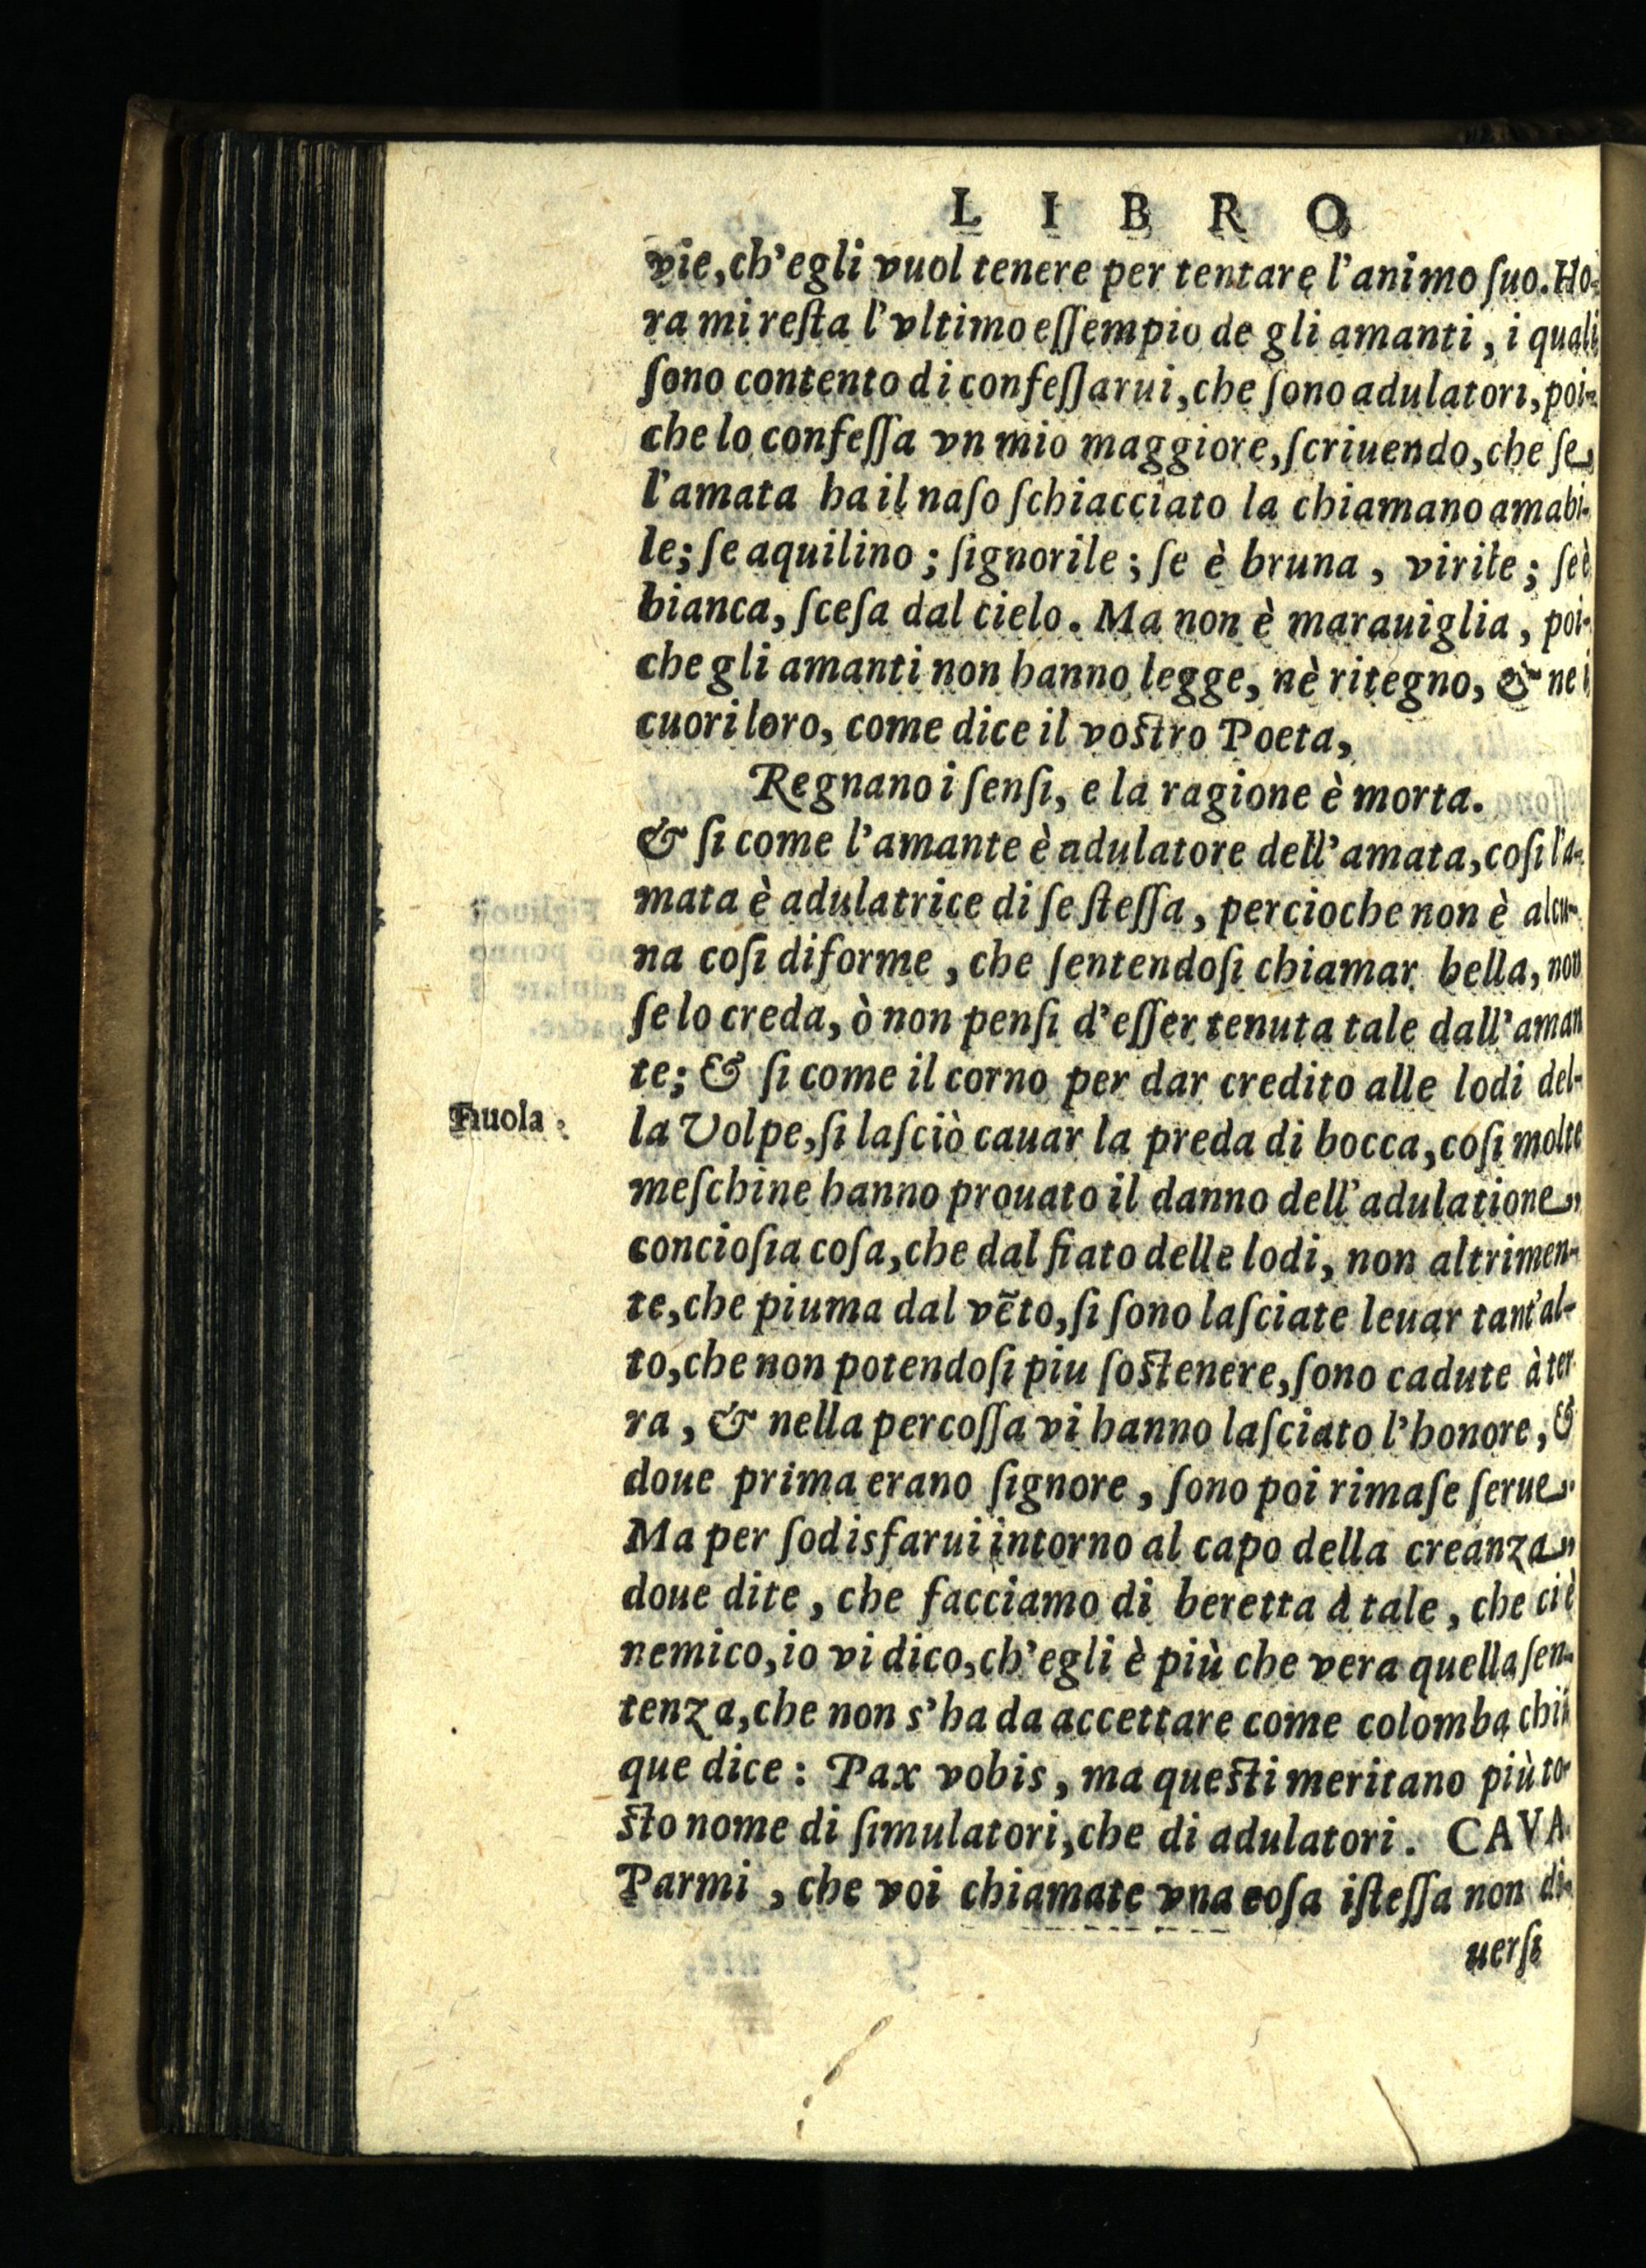 LIBRO
vie, ch'egli vuol tenere per tentare l'animo ſuo. Ho-
ra mi reſta l'vltimo eſſempio de gli amanti, i quali
ſono contento di confeſſarui, che ſono adulatori, poi-
che lo confeſſa vn mio maggiore, ſcriuendo, che ſe
l'amata ha il naſo ſchiacciato la chiamano amabi-
le; ſe aquilino; ſignorile; ſe è bruna, virile; ſe è
bianca, ſceſa dal cielo. Ma non è marauiglia, poi-
che gli amanti non hanno legge, nè ritegno, & ne i
cuori loro, come dice il voſtro Poeta,
Regnano i ſenſi, e la ragione è morta.
& ſi come l'amante è adulatore dell'amata, coſi l'a-
mata è adulatrice di ſe ſteſſa, percioche non è alcu-
na coſi diforme, che ſentendoſi chiamar bella, non
ſe lo creda, ò non penſi d'eſſer tenuta tale dall'aman
te; & ſi come il corno per dar credito alle lodi del-
Fauola.
la Volpe, ſi laſciò cauar la preda di bocca, coſi molte
meſchine hanno prouato il danno dell'adulatione,
concioſia coſa, che dal fiato delle lodi, non altrimen-
te, che piuma dal vẽto, ſi ſono laſciate leuar tant'al-
to, che non potendoſi piu ſoſtenere, ſono cadute à ter
ra, & nella percoſſa vi hanno laſciato l'honore, &
doue prima erano ſignore, ſono poi rimaſe ſerue.
Ma per ſodisfarui intorno al capo della creanza,
doue dite, che facciamo di beretta à tale, che ci è
nemico, io vi dico, ch'egli è più che vera quella ſen-
tenza, che non s'ha da accettare come colomba
que dice: Pax vobis, ma queſti meritano più to-
ſto nome di ſimulatori, che di adulatori. CAVA.
Parmi, che voi chiamate vna coſa iſteſſa non di-
uerſi